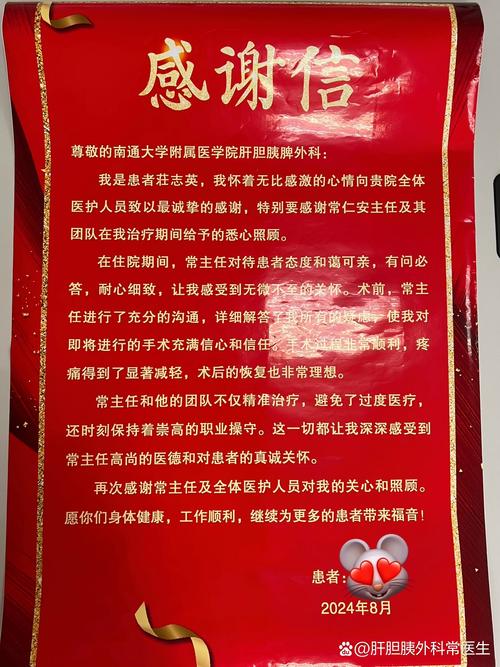 感谢信
尊敬的南通大学附属医学院肝胆胰脾外科：
我是患者莊志英，我怀着无比感激的心情向贵院全体
医护人员致以最诚挚的感谢，特别要感谢常仁安主任及其
团队在我治疗期间给予的悉心照顾。
在住院期间，常主任对待患者态度和蔼可亲，有问必
答，耐心细致，让我感受到无微不至的关怀。术前，常主
任进行了充分的沟通，详细解答了我所有的疑虑，使我对
即将进行的手术充满信心和信任。手术过程非常顺利，疼
痛得到了显著减轻，术后的恢复也非常理想。
常主任和他的团队不仅精准治疗，避免了过度医疗，
还时刻保持着崇高的职业操守。这一切都让我深深感受到
常主任高尚的医德和对患者的真诚关怀。
再次感谢常主任及全体医护人员对我的关心和照顾。
愿你们身体健康，工作顺利，继续为更多的患者带来福音！
患者：
2024年8月
@肝胆胰外科常医生